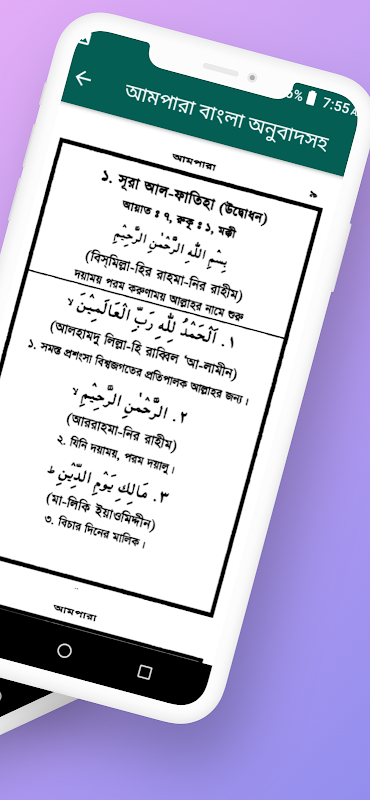 7:55
আমপারা বাংলা অনুবাদসহ
আমপারা
৯
১. সূরা আল-ফাতিহা (উদ্বোধন)
আয়াত : ৭, রুকূ : ১, মক্কী
بِسْمِ اللّٰهِ الرَّحْمٰنِ الرَّحِيْمِ
(বিস্‌মিল্লা-হির রাহমা-নির রাহীম)
দয়াময় পরম করুণাময় আল্লাহর নামে শুরু
١. اَلْحَمْدُ لِلّٰهِ رَبِّ الْعَالَمِيْنَ ۙ
(আলহামদু লিল্লা-হি রাব্বিল ‘আ-লামীন)
১. সমস্ত প্রশংসা বিশ্বজগতের প্রতিপালক আল্লাহর জন্য।
٢. الرَّحْمٰنِ الرَّحِيْمِ ۙ
(আররাহমা-নির রাহীম)
২. যিনি দয়াময়, পরম দয়ালু।
٣. مَالِكِ يَوْمِ الدِّيْنِ ؕ
(মা-লিকি ইয়াওমিদ্দীন)
৩. বিচার দিনের মালিক।
আমপারা